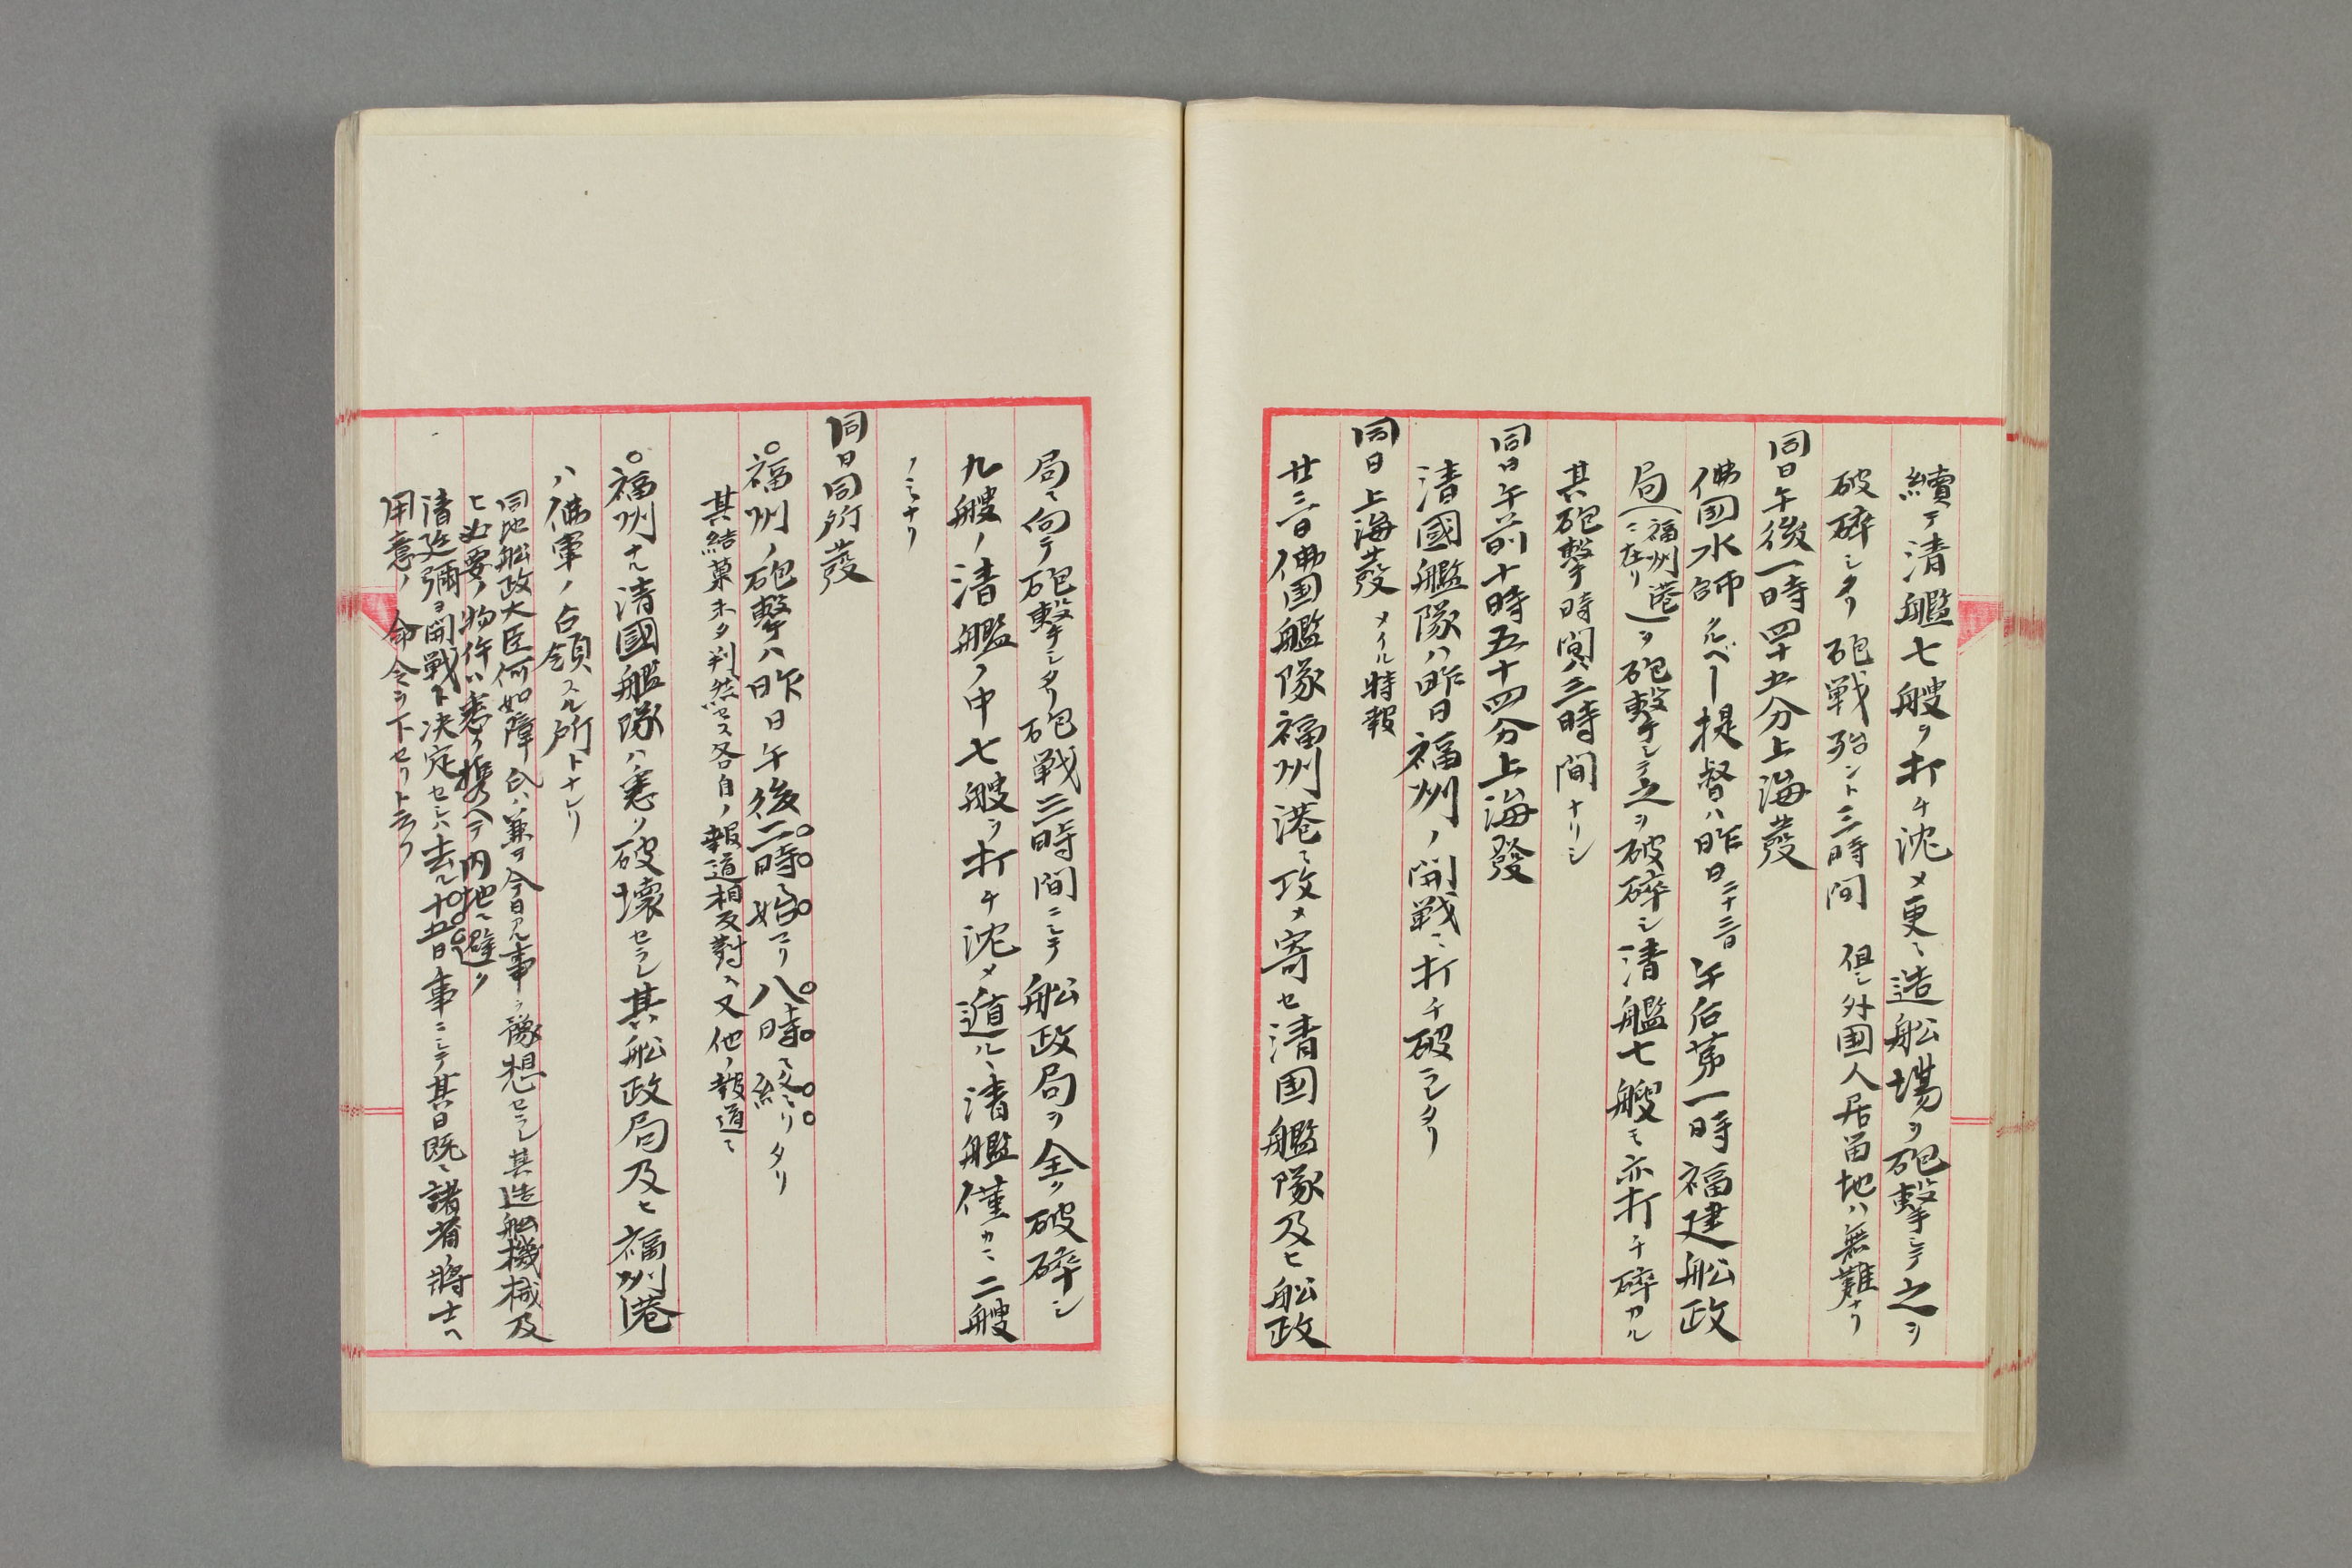 續テ清艦七艘ヲ打チ沈メ更ニ造舩塲ヲ砲擊シテ之ヲ
破碎シタリ砲戦殆ント三時間 但シ外国人居留地ハ無難ナリ
同日午後一時四十五分上海發
佛国水師クルベー提督ハ昨日二十三日午后第一時福建舩政
局（福州港ニ在リ）ヲ砲擊シテ之ヲ破碎シ清艦七艘モ亦打チ碎カル
其砲擊時間ハ三時間ナリシ
同日午前十時五十四分上海發
清國艦隊ハ昨日福州ノ開戦ニ打チ破ラレタリ
同日上海發 メイル特報
廿三日佛国艦隊福州港ニ攻メ寄セ清国艦隊及ヒ舩政
局ニ向テ砲擊シタリ砲戦三時間ニシテ舩政局ヲ全ク破碎シ
九艘ノ清艦ノ中七艘ヲ打チ沈メ遁ルヽ清艦僅カニ二艘
ノミナリ
同日同所發
○福州ノ砲擊ハ昨日午後二時ニ始マリ八時ニ終リタリ
其結菓未タ判然セス各自ノ報道相反對ス又他ノ報道ニ
○福州ナル清國艦隊ハ悉ク破壊セラレ其舩政局及ヒ福州港
ハ佛軍ノ占領スル所トナレリ
同地舩政大臣何如璋氏ハ兼テ今日アル事ヲ豫想セラレ其造舩機械及
ヒ必要ノ物件ハ悉ク携ヘテ内地ニ避ク
清廷彌ヨ開戦ト决定セシハ去ル十五日ノ事ニシテ其日既ニ諸省ノ將士ヘ
用意ノ命令ヲ下セリト云フ